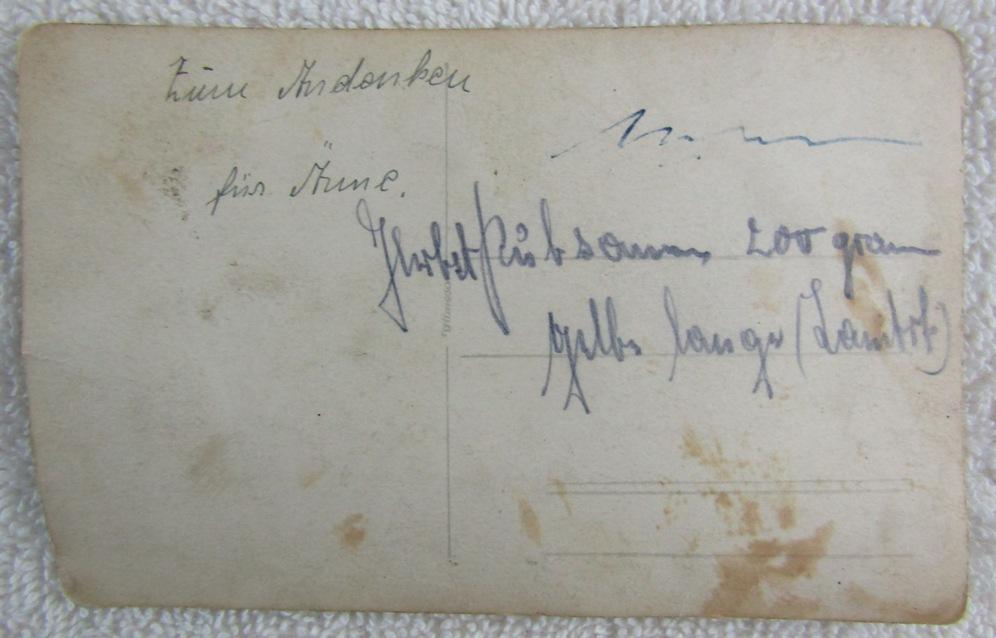 Zum Andenken
für Änne.
Herbstrübsamen 200 gram
gelbe lange